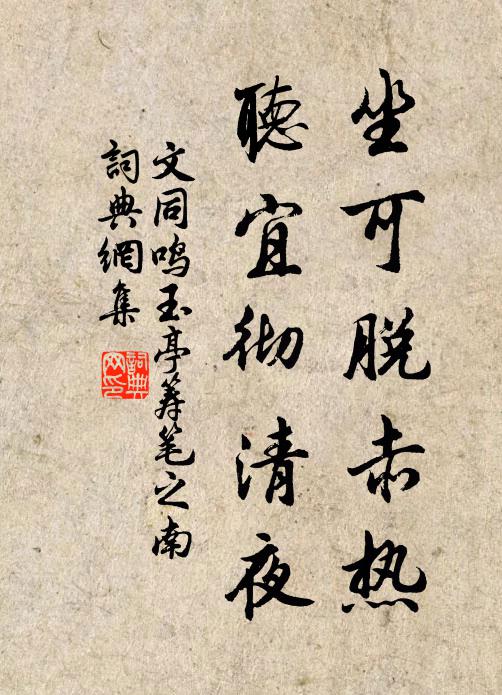 坐可脱赤热
聽宜彻清夜
文同鸣玉亭筹笔之南
詞典網集
詞典網印